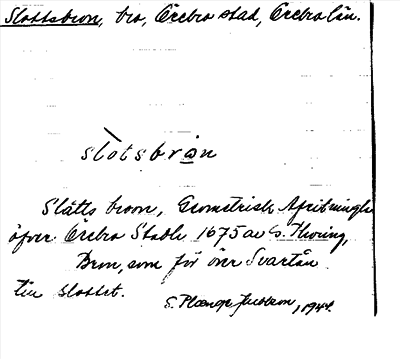 Slottsbron, bro, Örebro stad, Örebro län.
slòtsbrån
Slåtts broon, Geometrisk Afritningh
öfver Örebro Stadh 1675 av G. Thoring,
Bron, som för över Svartån
till slottet.
S. Jacobson, 1944.